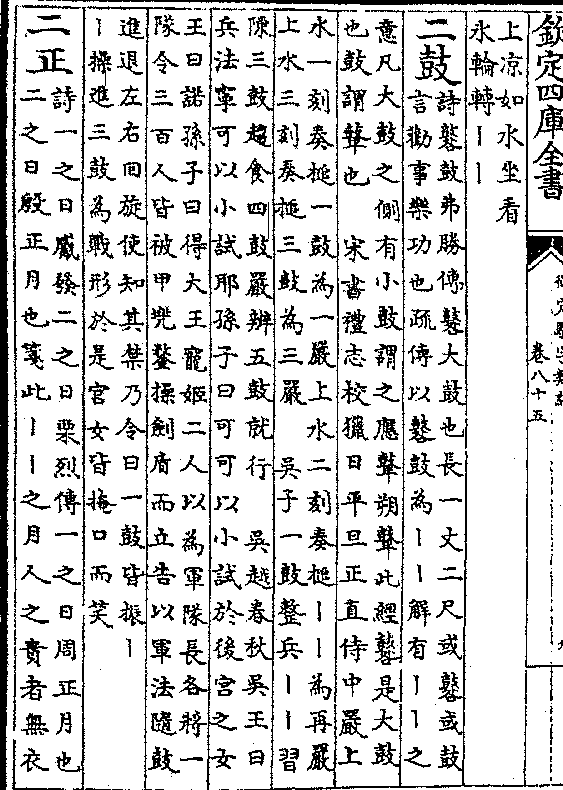 欽定四庫全書
卷八十五
上涼如水坐看
氷輪轉丨丨
二鼓
詩鼛鼓弗勝傳鼛大鼓也長一丈二尺或鼛或鼓
言勸事樂功也疏傳以鼛鼓為丨丨解有丨丨之
意凡大鼓之側有小鼓謂之應鼙朔鼙此經鼛是大鼓
也鼓謂鼙也 宋書禮志校獵日平旦正直侍中嚴上
水一刻奏槌一鼓為一嚴上水二刻奏槌丨丨為再嚴
上水三刻奏槌三鼓為三嚴 吳子一鼓整兵丨丨習
陳三鼓趨食四鼓嚴辨五鼓就行 吳越春秋吳王曰
兵法寧可以小試耶孫子曰可可以小試於後宮之女
王曰諾孫子曰得大王寵姬二人以為軍隊長各將一
隊令三百人皆被甲兜鍪操劍盾而立告以軍法隨鼓
進退左右回旋使知其禁乃令曰一鼓皆振丨
丨操進三鼓為戰形於是宮女皆掩口而笑
二正
詩一之日觱發二之日栗烈傳一之日周正月也
二之日殷正月也箋此丨丨之月人之貴者無衣